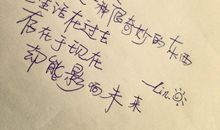 种宿奇妙的东西
生活在过去
存在于现在
却能影响未来